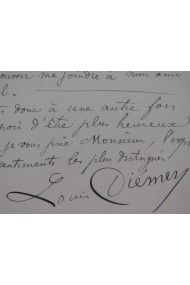 pouvoir me joindre à mon ami
donc à une autre fois
d'être plus heureux
je vous prie Monsieur, l'exp
sentiments les plus distingués
Louis Diémer